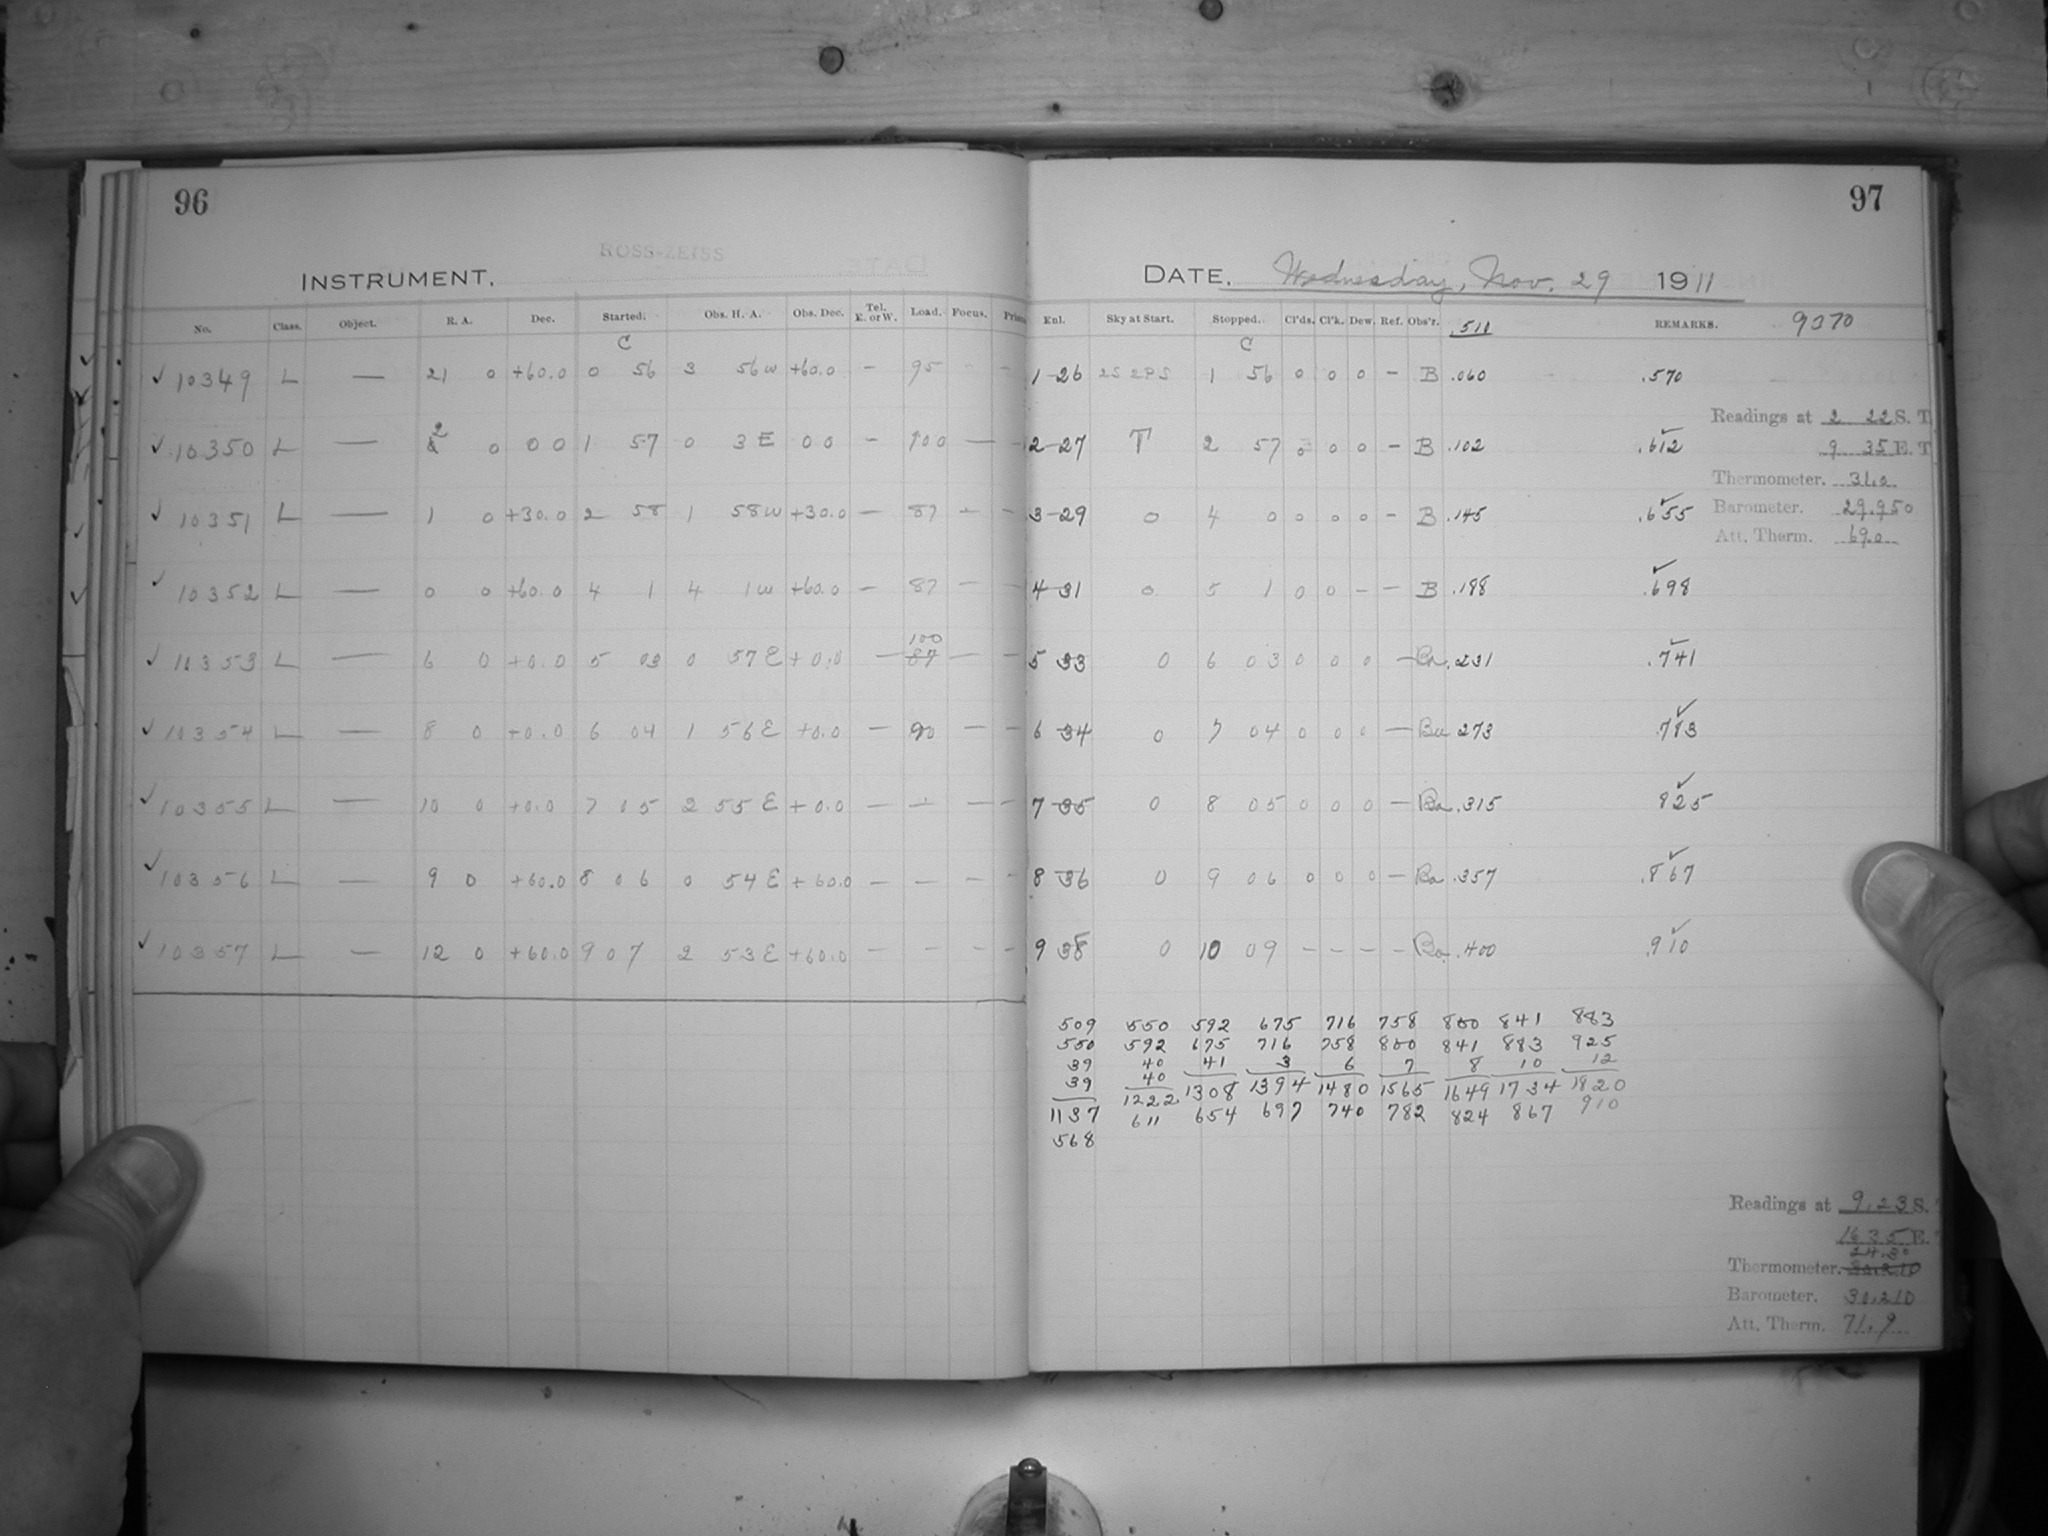 96
ROSS-ZEISS
INSTRUMENT.
No. Class. Object. R. A. Dec. Started. Obs. H. A. Obs. Dec. Tel. E. or W. Load. Focus.
C
✓ 10349 L — 21 0 +60.0 0 56 3 56 W +60.0 — 95 — —
✓ 10350 L — 2 0 0 0 1 57 0 3 E 0 0 — 100 — —
✓ 10351 L — 1 0 +30.0 2 58 1 58 W +30.0 — 87 — —
✓ 10352 L — 0 0 +60.0 4 1 4 1 W +60.0 — 87 — —
100
✓ 10353 L — 6 0 +0.0 5 03 0 57 E +0.0 — 87 — —
✓ 10354 L — 8 0 +0.0 6 04 1 56 E +0.0 — 90 — —
✓ 10355 L — 10 0 +0.0 7 05 2 55 E +0.0 — — — —
✓ 10356 L — 9 0 +60.0 8 06 0 54 E +60.0 — — — —
✓ 10357 L — 12 0 +60.0 9 07 2 53 E +60.0 — — — —
97
DATE. Wednesday, Nov. 29 1911
Enl. Sky at Start. Stopped. Cl'ds. Cl'k. Dew. Ref. Obs'r. .510 REMARKS. 9370
C
1-26 2S 2PS 1 56 0 0 0 — B .060 .570
Readings at 2 22 S. T.
2-27 T 2 57 0 0 0 — B .102 .612 ✓
9 35 E. T.
Thermometer. 31.0
3-29 0 4 0 0 0 0 — B .145 .655 ✓
Barometer. 29.950
Att. Therm. 69.0
4-31 0 5 1 0 0 — — B .188 .698 ✓
5 33 0 6 03 0 0 0 — Ba .231 .741 ✓
6 34 0 7 04 0 0 0 — Ba 273 .783 ✓
7 35 0 8 05 0 0 0 — Ba .315 825 ✓
8 36 0 9 06 0 0 0 — Ba .357 .867 ✓
9 38 0 10 09 — — — — Ba .400 .910 ✓
509 550 592 675 716 758 800 841 883
550 592 675 716 758 800 841 883 925
39 40 41 3 6 7 8 10 12
39 40 1308 1394 1480 1565 1649 1734 1820
1137 1222 654 697 740 782 824 867 910
568 611
Readings at 9.23 S.
16 35 E.
24.30
Thermometer. 30.210
Barometer. 30.210
Att. Therm. 71.9